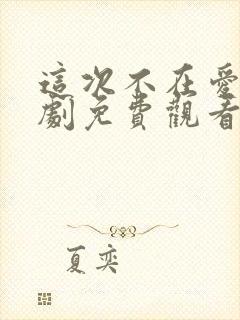 這次不在愛
劇免費觀看
夏奕